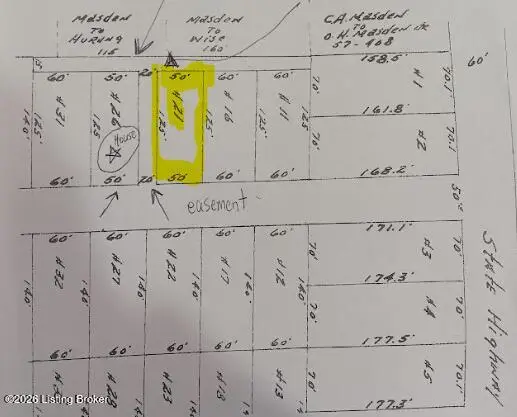 Masden
To
Hurung
116
Masden
To
Wise
160
C.A. Masden
To
O.H. Masden Jr.
57-468
158.5'
60'
15'
60'
50'
20'
50'
60'
60'
70'
#1
70.1'
161.8'
140'
#31
125'
#26
125'
#21
125'
#16
125'
#11
125'
House
70'
#2
70.1'
168.2'
60'
50'
20'
50'
60'
60'
easement
50'
State Highway
60'
60'
60'
60'
60'
171.1'
70'
#3
70'
174.3'
140'
#32
140'
#27
140'
#22
140'
#17
140'
#12
140'
70'
#4
70'
177.5'
60'
60'
60'
60'
60'
70'
#5
70.1'
177.3'
#28
#23
#18
#13
©2026 Listing Broker